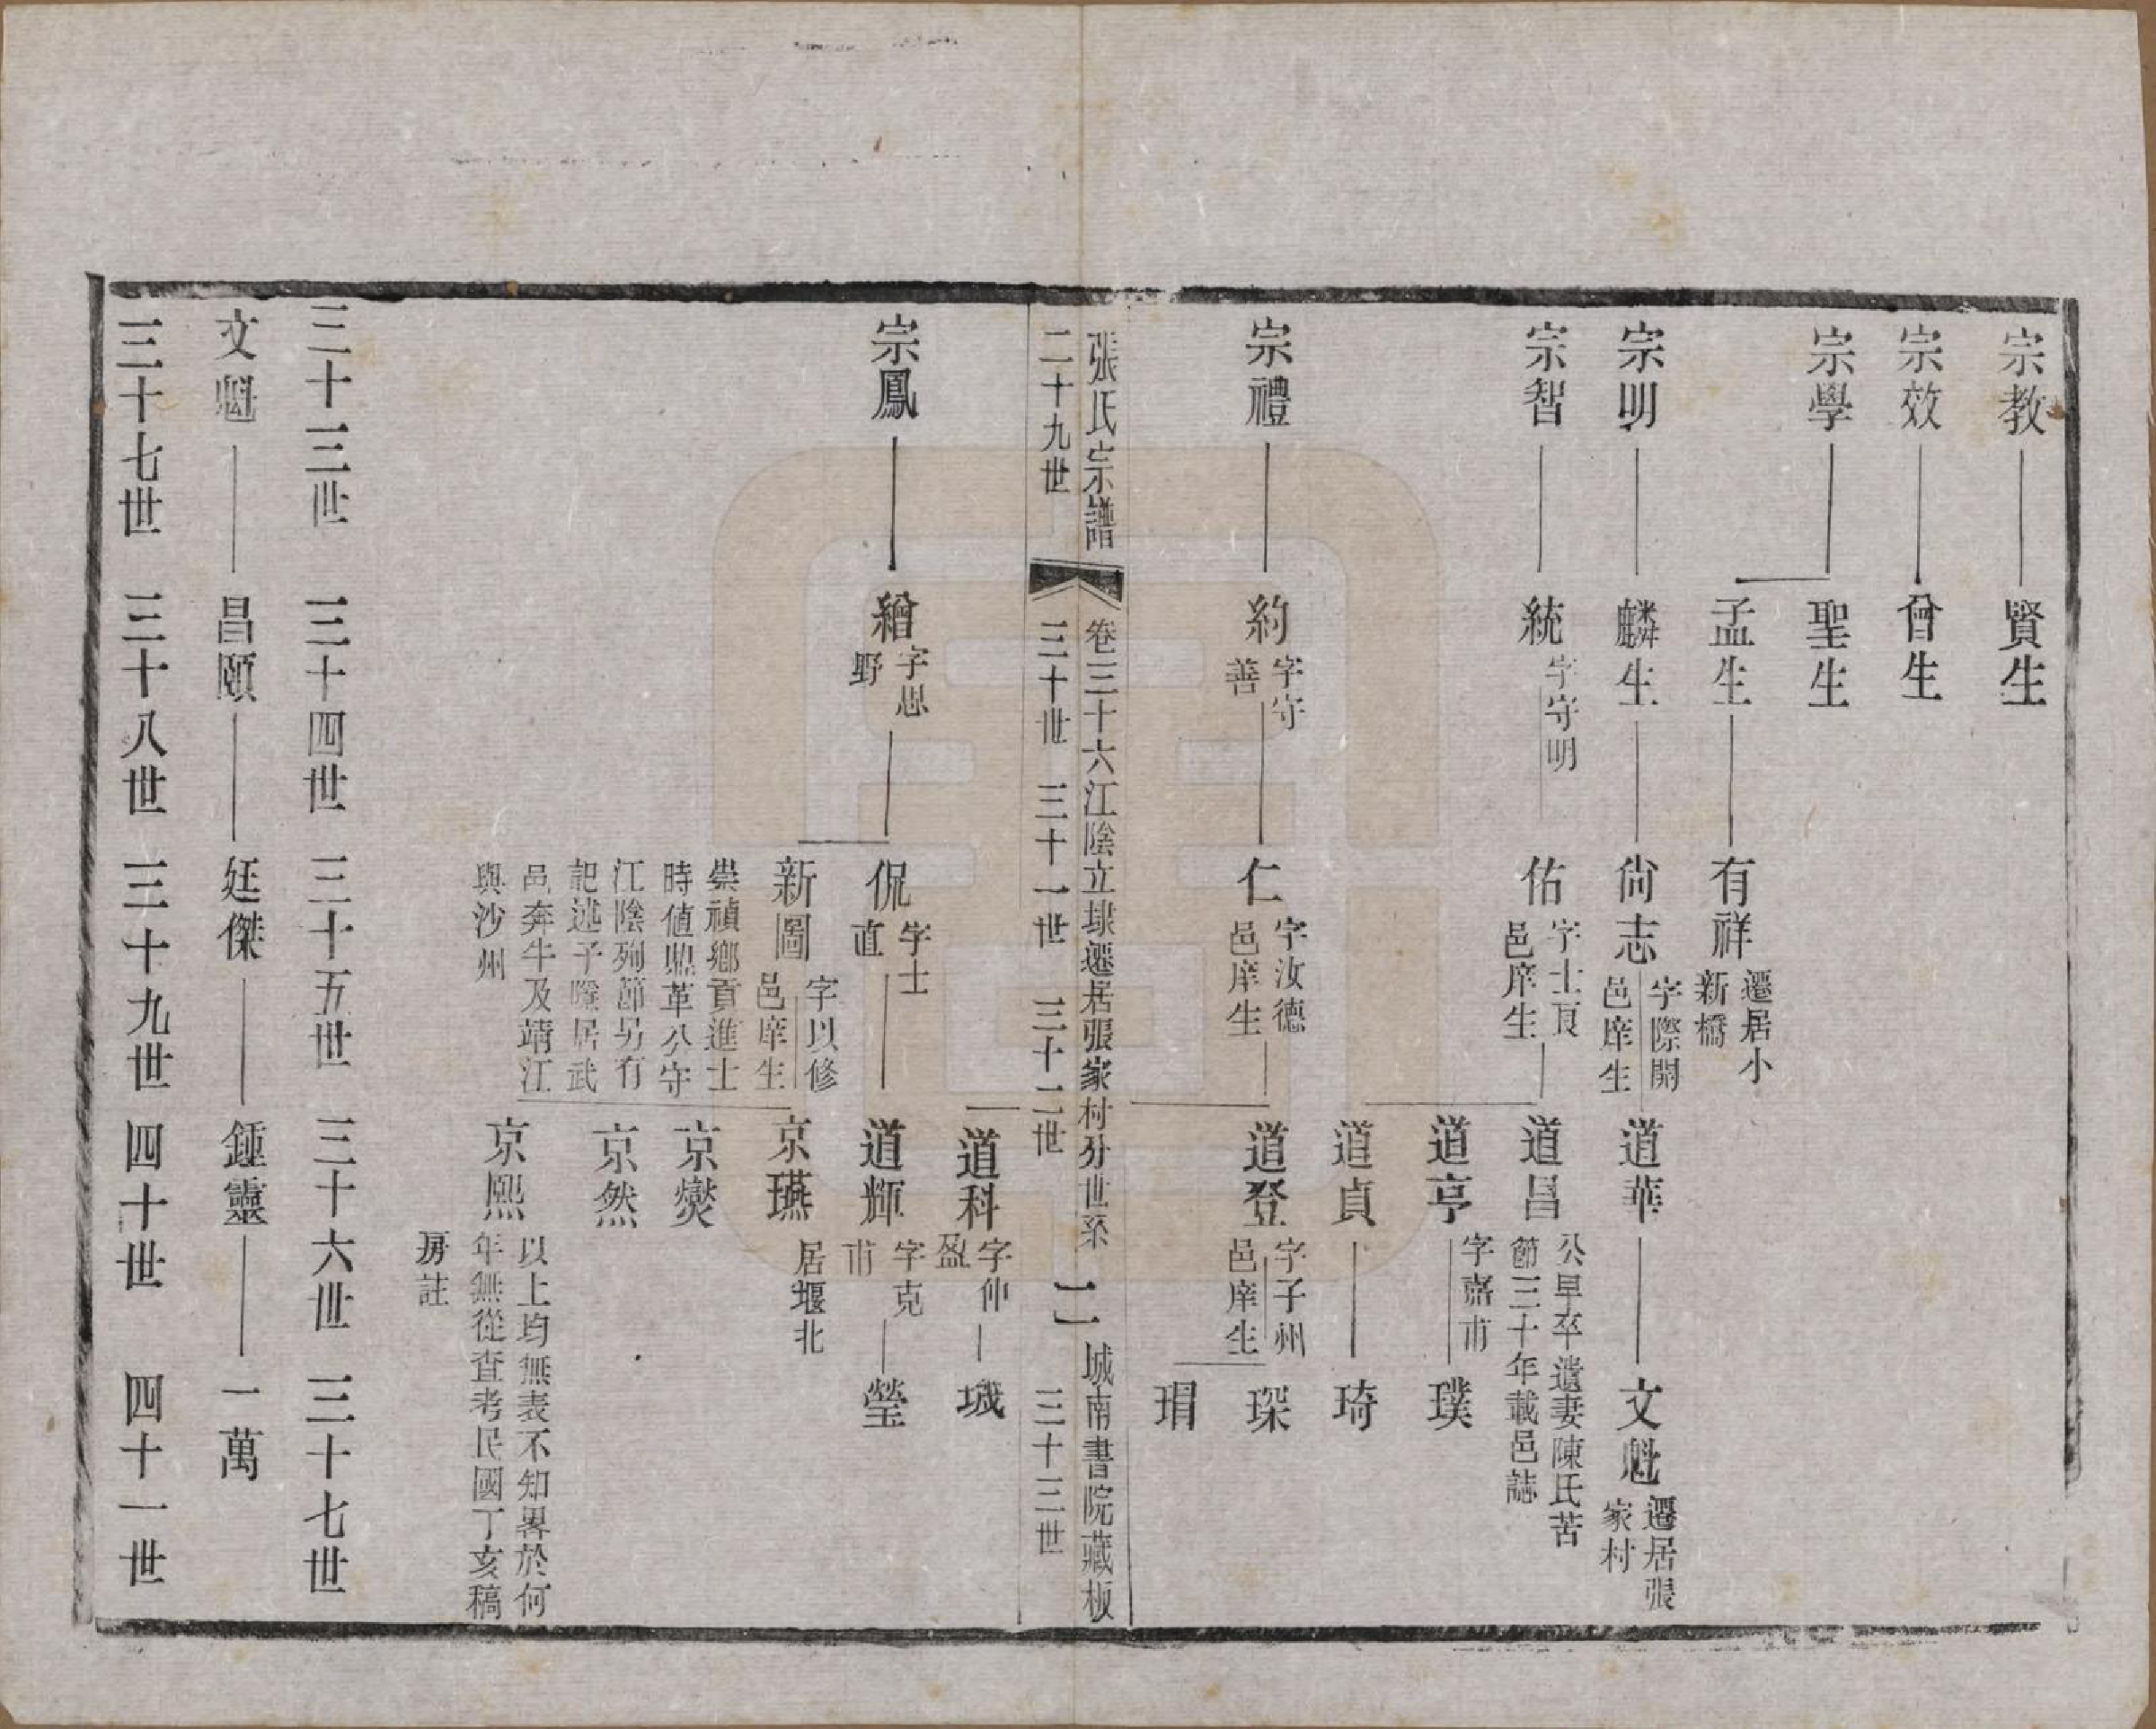 宗教 賢生
宗效 曾生
宗學 聖生
孟生 有祥 遷居小新橋
宗明 麟生 尙志 字際開邑庠生 道華 文魁 遷居張家村
宗智 統 字守明 佑 字士頁邑庠生 道昌 公早卒遺妻陳氏苦節三十年載邑誌
道亨 字嘉甫 璞
道貞 琦
宗禮 約 字守善 仁 字汝德邑庠生 道登 字子州邑庠生 琛
琄
張氏宗譜 卷三十六江陰立埭遷居張家村分世系 二 城南書院藏板
二十九世 三十世 三十一世 三十二世 三十三世
道科 字仲盈 城
宗鳳 繪 字思野 侃 字士直 道輝 字克甫 瑩
新圖 字以修邑庠生 京瓙 居堰北
崇禎鄉貢進士
時值鼎革公守
江陰殉節另有
記述子 居武
邑奔牛及靖江
與沙州
京爕
京然
京熙 以上均無表不知畧於何
年無從查考民國丁亥稿
房註
三十三世 三十四世 三十五世 三十六世 三十七世
文魁 昌頤 廷傑 鍾靈 一萬
三十七世 三十八世 三十九世 四十世 四十一世